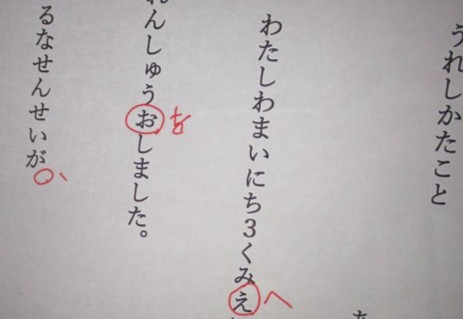 うれしかたこと
わたしわまいにち3くみえへ
れんしゅうおをしました。
るなせんせいが、